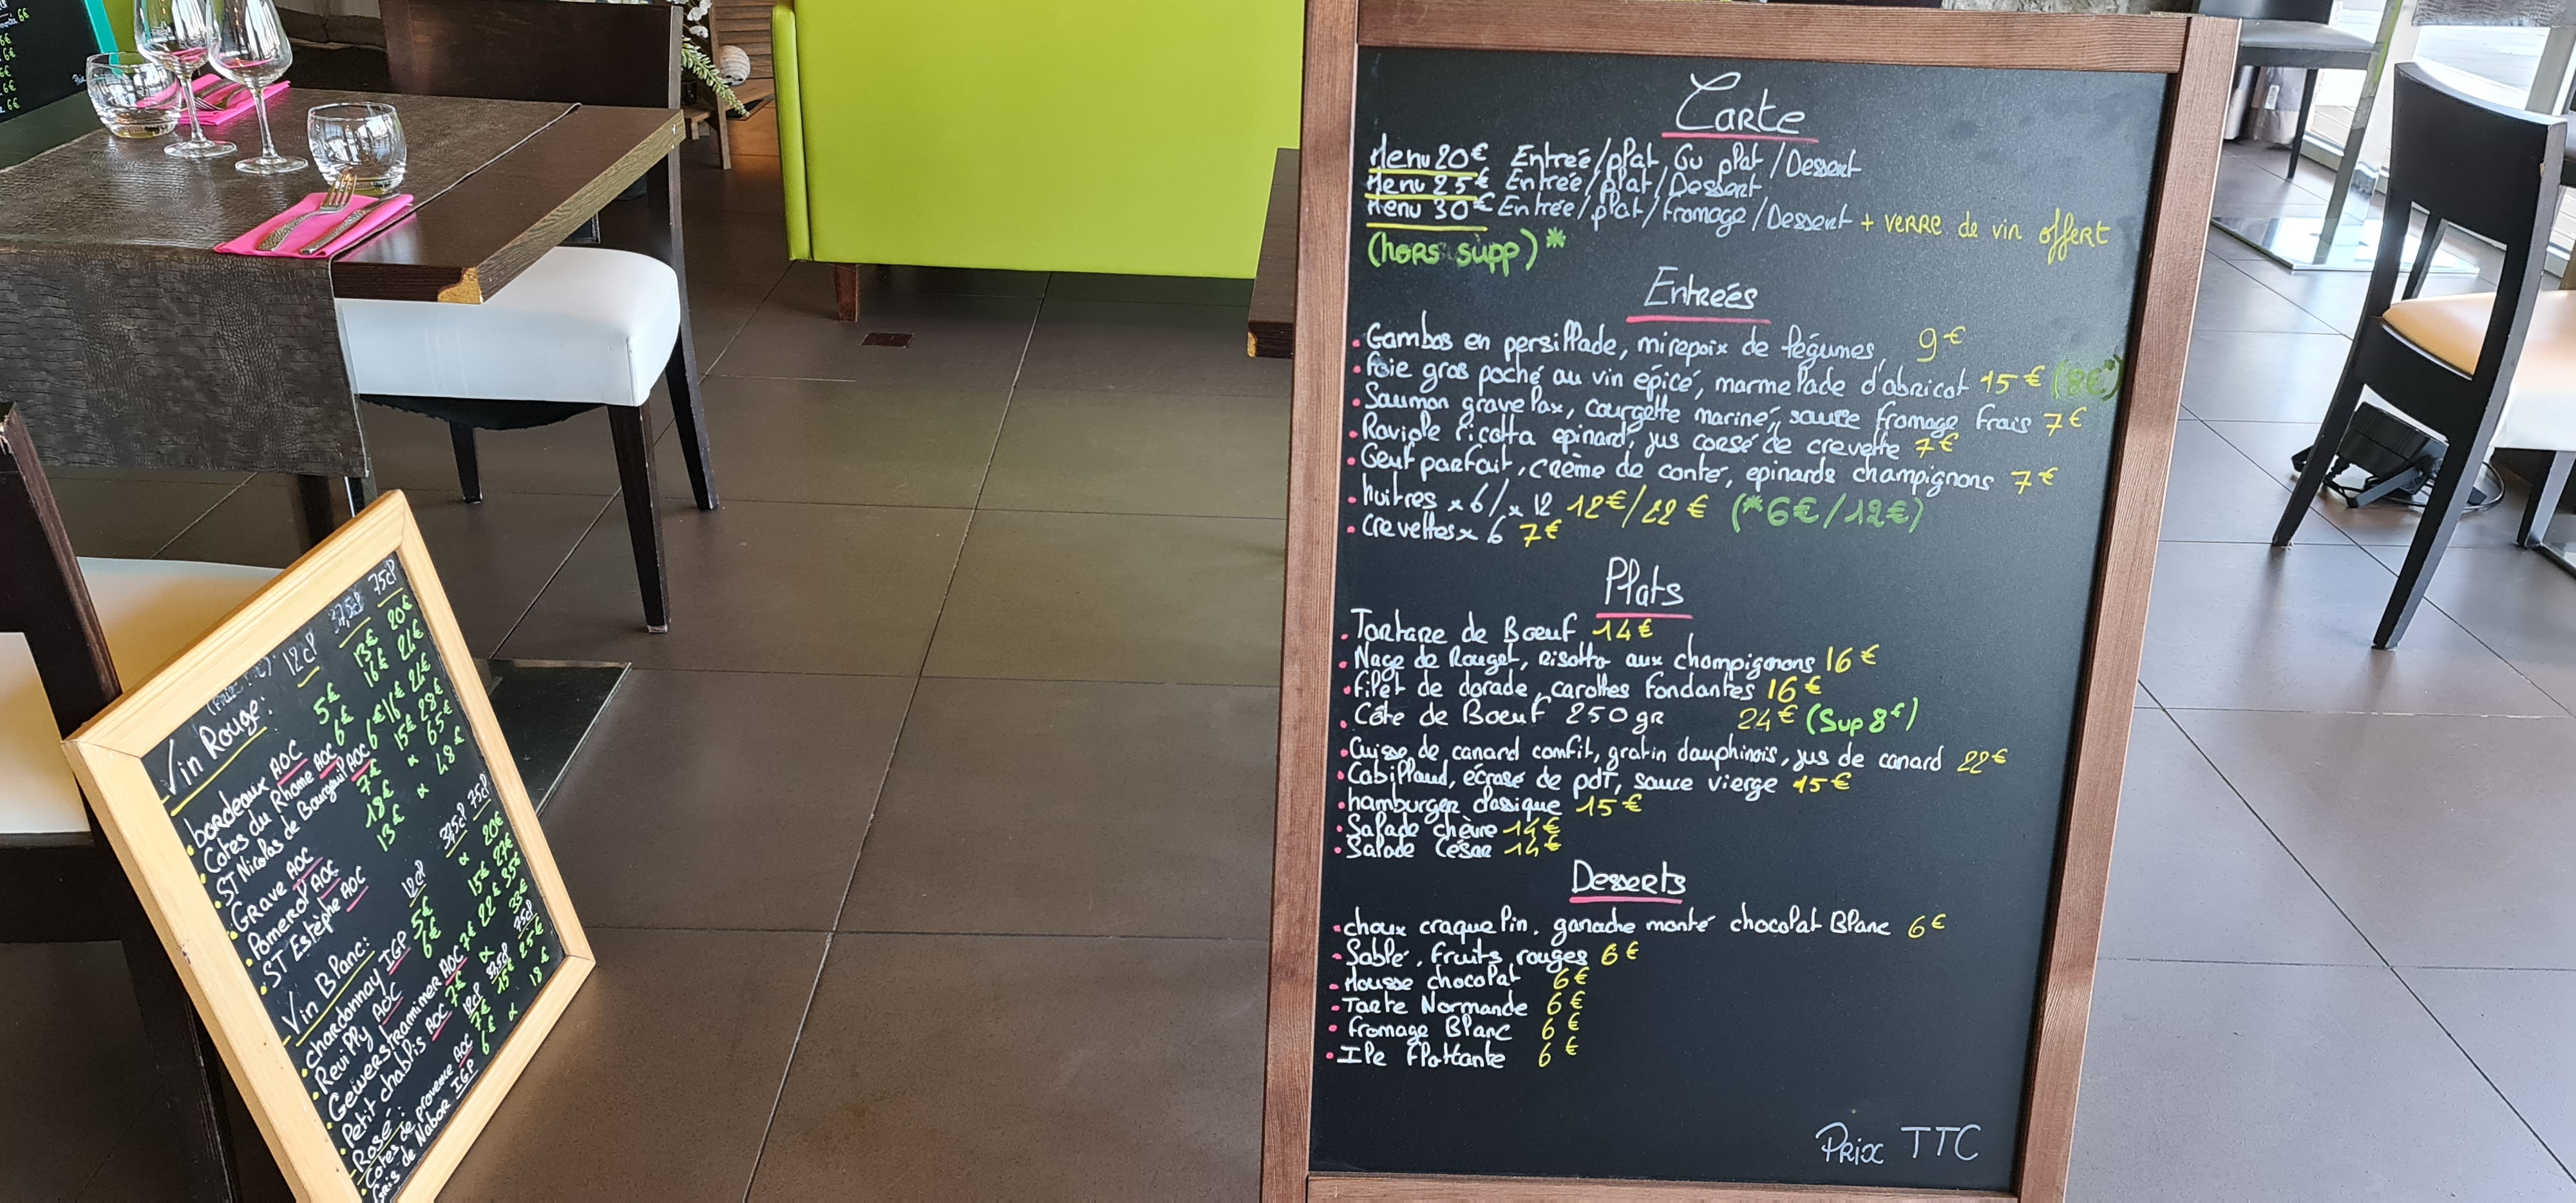 Carte
Menu 20€ Entrée/plat Ou plat/Dessert
Menu 25€ Entrée/plat/Dessert
Menu 30€ Entrée/plat/fromage/Dessert + verre de vin offert
(hors supp)*
Entreés
Gambas en persillade, mirepoix de légumes, 9€
foie gras poché au vin épicé, marmelade d'abricot 15€ (8€*)
Saumon gravelax, courgette mariné, sauce fromage frais 7€
Raviole ricotta epinard, jus corsé de crevette 7€
Oeuf parfait, crème de conté, epinards champignons 7€
huitres x 6/x 12 12€/22€ (*6€/12€)
crevettes x 6 7€
Plats
Tartare de Bœuf 14€
Nage de Rouget, risotto aux champignons 16€
filet de dorade, carottes fondantes 16€
Côte de Boeuf 250 gr 24€ (Sup 8€)
Cuisse de canard comfit, gratin dauphinois, jus de canard 22€
Cabillaud, écrasé de pdt, sauce vierge 15€
hamburger classique 15€
Salade chèvre 14€
Salade César 14€
Desserts
choux craquelin, ganache monté chocolat Blanc 6€
Sablé, fruits rouges 6€
Mousse chocolat 6€
Tarte Normande 6€
fromage Blanc 6€
Ile flottante 6€
Prix TTC
Vin Rouge: 12cl 37,5cl 75cl
bordeaux AOC 5€ 13€ 20€
Cotes du Rhome AOC 6€ 16€ 24€
ST Nicolas de Bourgueil AOC 6€ 16€ 24€
Grave AOC 7€ 15€ 28€
Pomerol AOC 18€ 65€
ST Estèphe AOC 13€ 48€
Vin Blanc: 12cl 37,5cl 75cl
chardonnay IGP 5€ 20€
Reuilly AOC 6€ 15€ 27€
Gewerstraminer AOC 7€ 22€ 35€
Petit chablis AOC 7€ 33€
Rosé: 12cl 37,5cl 75cl
Cotes de provence AOC 7€ 15€ 25€
Gris de Nabor IGP 6€ 18€